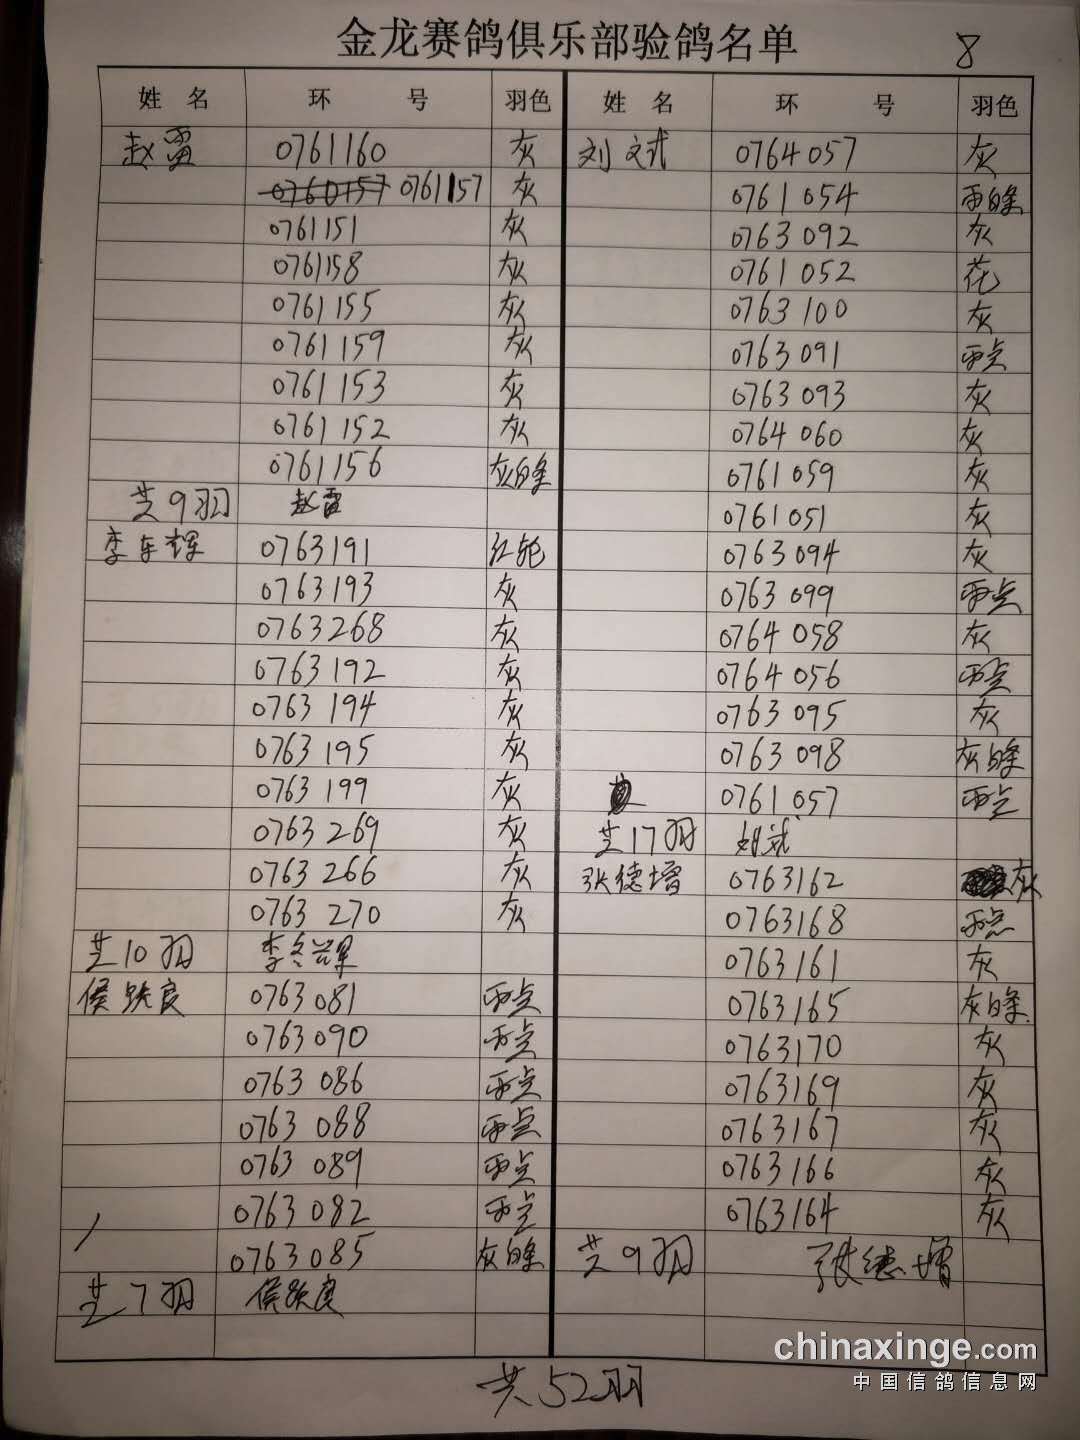 金龙赛鸽俱乐部验鸽名单
8
姓名 环号 羽色
赵雷 0761160 灰
0761157 灰
0761151 灰
0761158 灰
0761155 灰
0761159 灰
0761153 灰
0761152 灰
0761156 灰白条
共9羽 赵雷
李东辉 0763191 红轮
0763193 灰
0763268 灰
0763192 灰
0763194 灰
0763195 灰
0763199 灰
0763269 灰
0763266 灰
0763270 灰
共10羽 李冬辉
侯跃良 0763081 雨点
0763090 雨点
0763086 雨点
0763088 雨点
0763089 雨点
0763082 雨点
0763085 灰白条
共7羽 侯跃良
姓名 环号 羽色
刘文斌 0764057 灰
0761054 雨白条
0763092 灰
0761052 花
0763100 灰
0763091 雨点
0763093 灰
0764060 灰
0761059 灰
0761051 灰
0763094 灰
0763099 雨点
0764058 灰
0764056 雨点
0763095 灰
0763098 灰白条
0761057 雨点
共17羽
张德增 0763162 灰
0763168 雨点
0763161 灰
0763165 灰白条
0763170 灰
0763169 灰
0763167 灰
0763166 灰
0763164 灰
共9羽 张德增
共52羽
chinaxinge.com
中国信鸽信息网